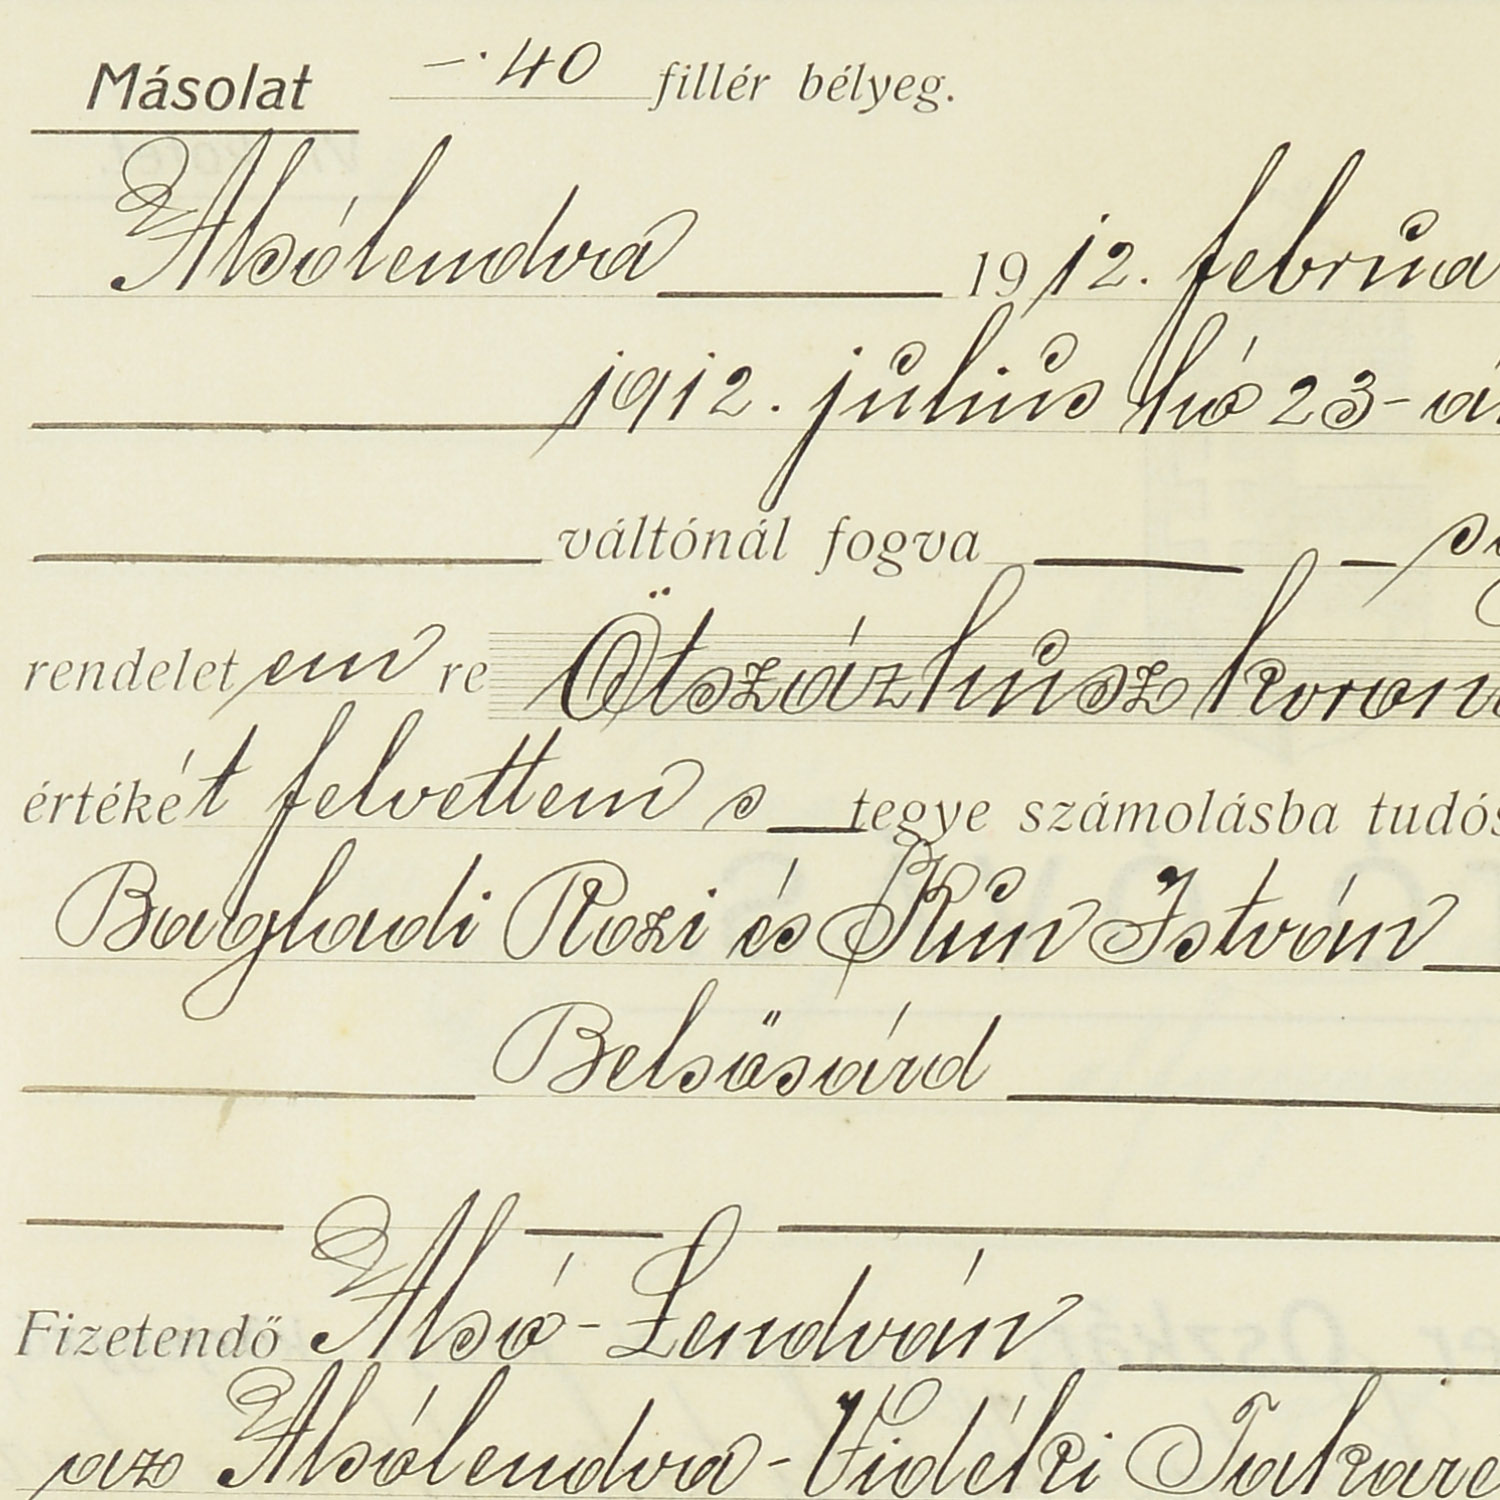 Másolat –·40 fillér bélyeg.
Alsólendva 1912. februa
1912. július hó 23-á
váltónál fogva
rendelet em re Ötszázhúsz koron
értéké t felvettem s tegye számolásba tudós
Baghadi Rozi és Kún István
Belsősárd
Fizetendő Alsó-Lendván
az Alsólendva-Vidéki Takare